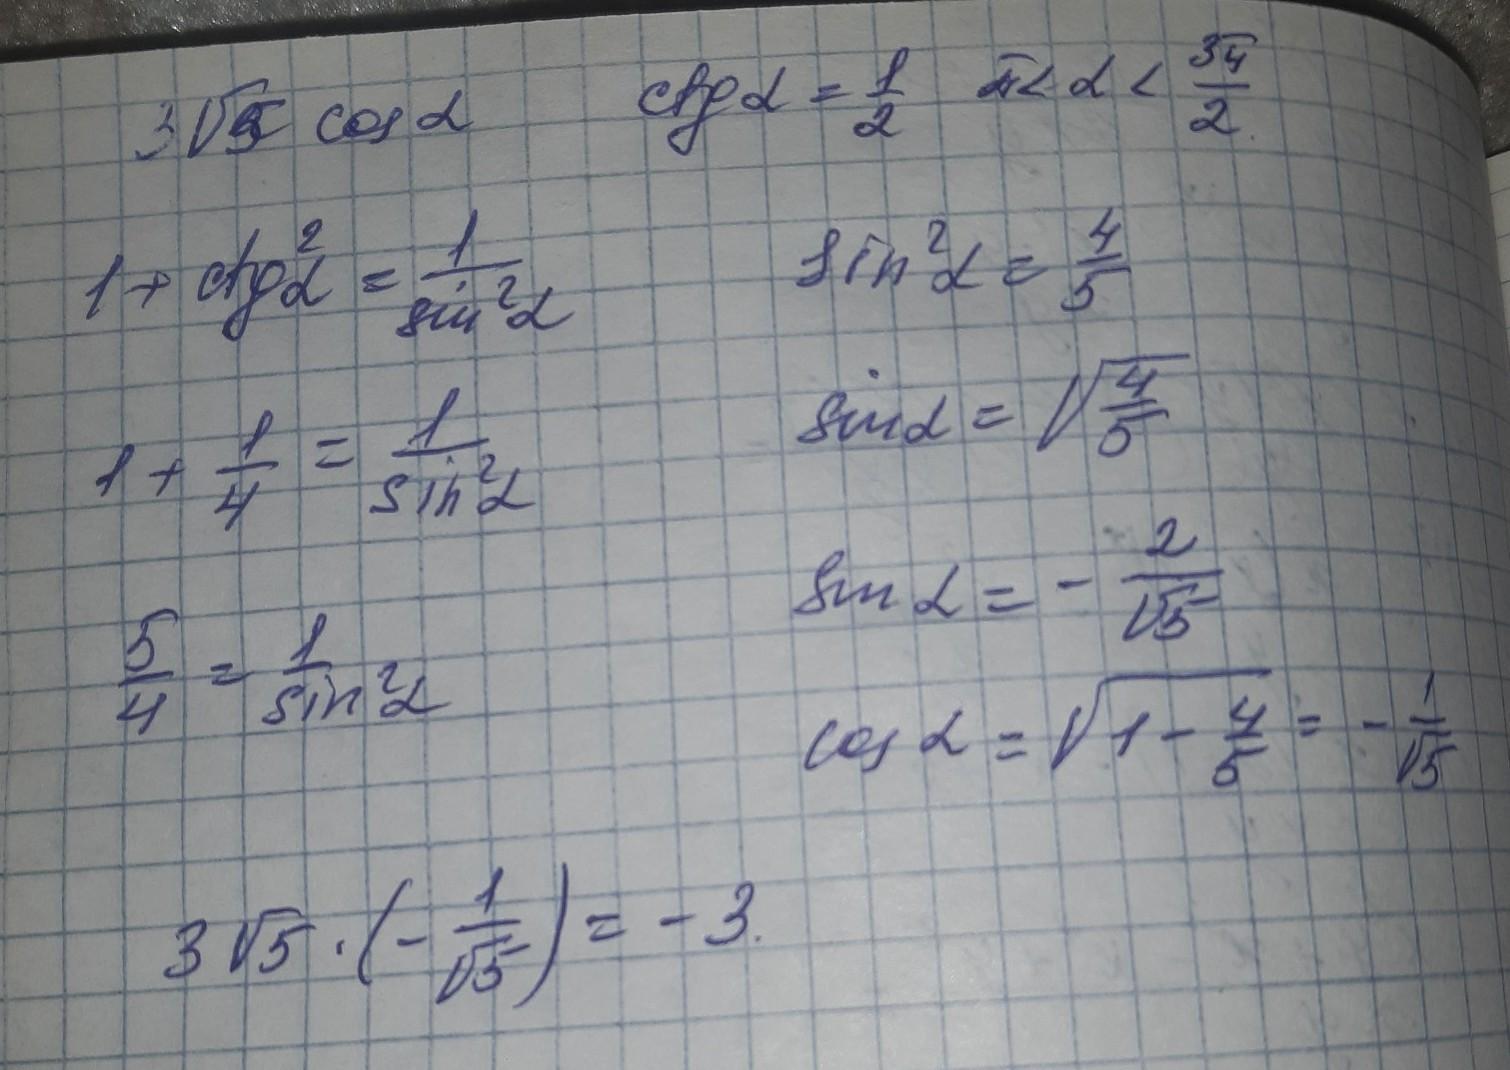 3√5 cos α    ctg α = 1/2    π < α < 3π/2
1 + ctg²α = 1/sin²α
1 + 1/4 = 1/sin²α
5/4 = 1/sin²α
sin²α = 4/5
sin α = √(4/5)
sin α = - 2/√5
cos α = √(1 - 4/5) = - 1/√5
3√5 · (- 1/√5) = - 3.